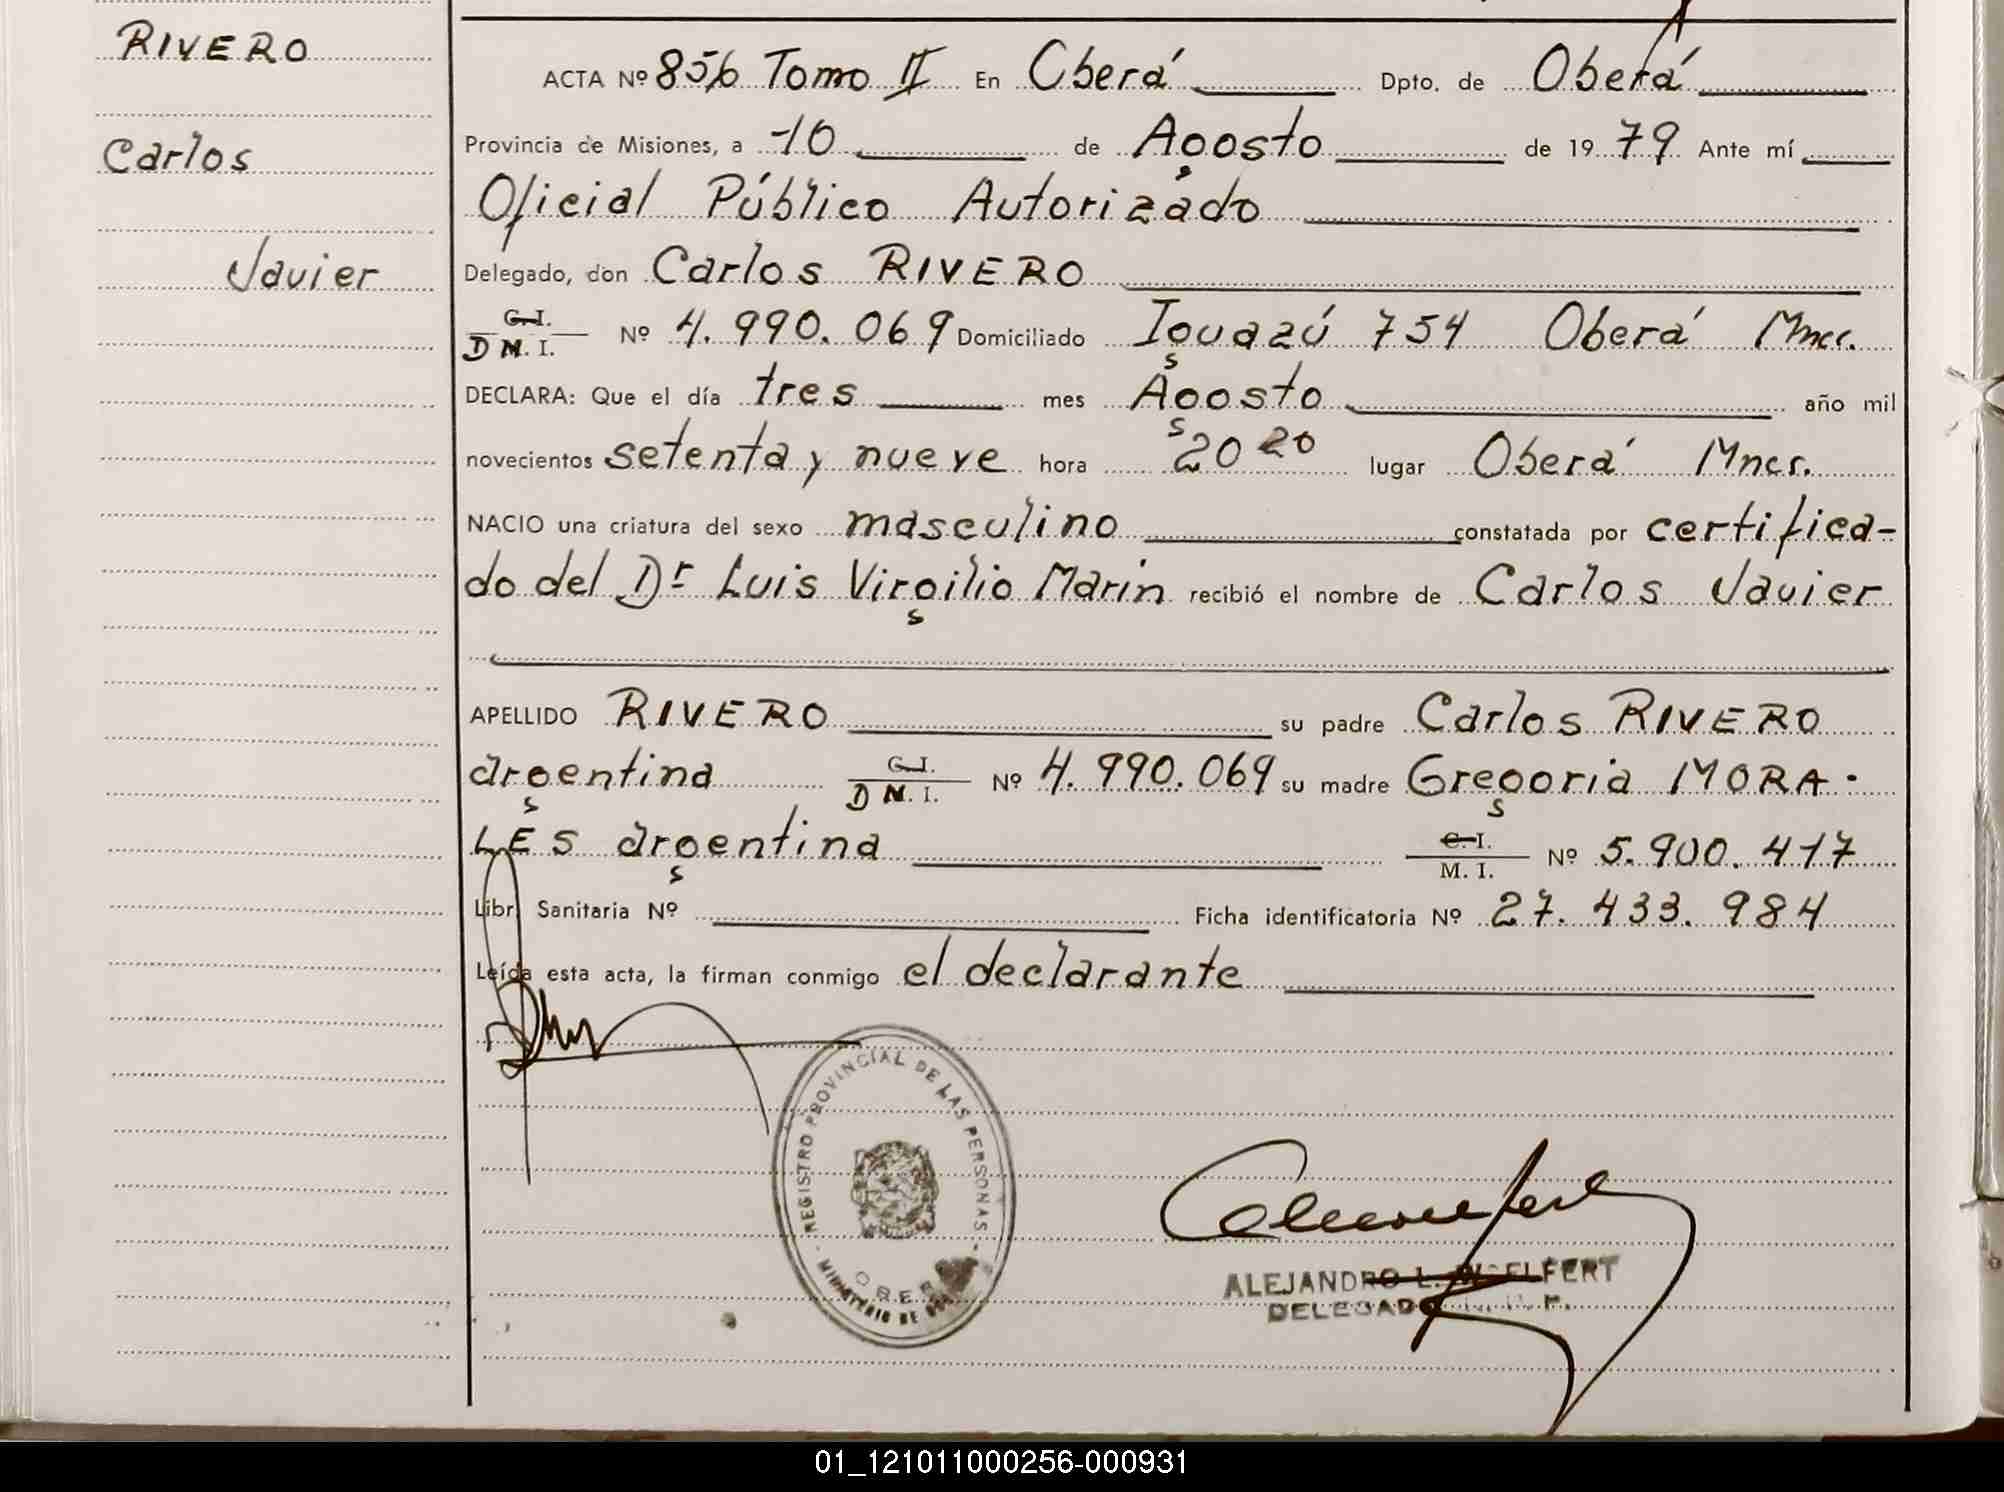 RIVERO
Carlos
Javier
ACTA Nº 856 Tomo II En Oberá Dpto. de Oberá
Provincia de Misiones, a 10 de Agosto de 1979 Ante mí
Oficial Público Autorizado
Delegado, don Carlos RIVERO
C.I.
D N. I. Nº 4.990.069 Domiciliado Iguazú 754 Oberá Mnes.
DECLARA: Que el día tres mes Agosto año mil
novecientos setenta y nueve hora 20 20 lugar Oberá Mnes.
NACIO una criatura del sexo masculino constatada por certifica-
do del Dr Luis Virgilio Marin recibió el nombre de Carlos Javier
APELLIDO RIVERO su padre Carlos RIVERO
argentina C.I. D N. I. Nº 4.990.069 su madre Gregoria MORA-
LES argentina C.I. M. I. Nº 5.900.417
Libr. Sanitaria Nº Ficha identificatoria Nº 27.433.984
Leída esta acta, la firman conmigo el declarante
REGISTRO PROVINCIAL DE LAS PERSONAS
MINISTERIO DE
OBERÁ
ALEJANDRO L.
DELEGADO
01_121011000256-000931